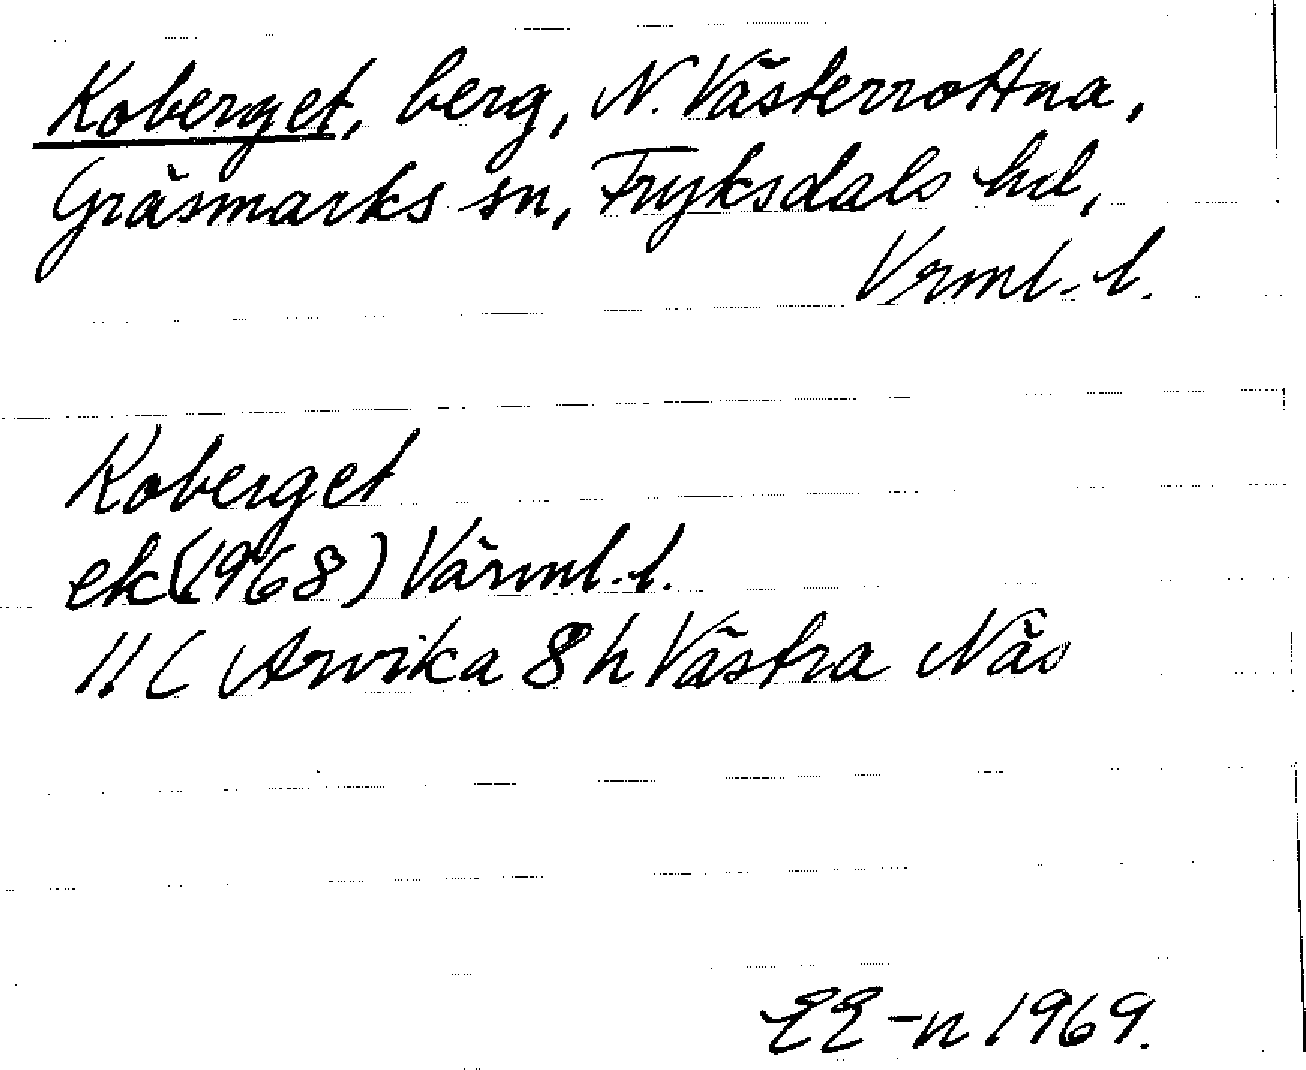 Koberget, berg, N. Västerrottna,
Gräsmarks sn, Fryksdals hd,
Vrml. l.
Koberget
ek (1968) Värml. l.
11 C Arvika 8 h Västra Näs
EE-n 1969.